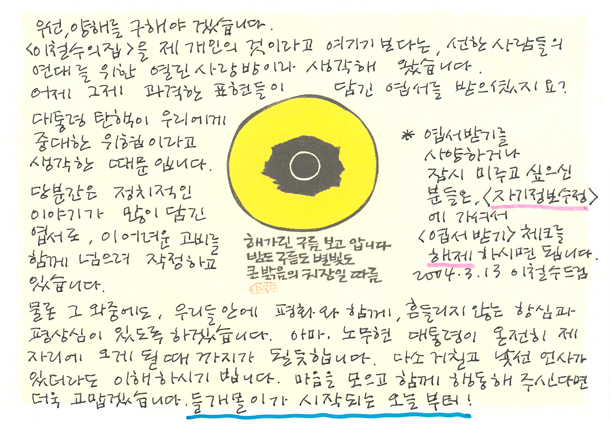 우선, 양해를 구해야 겠습니다.
<이철수의 집>을 제 개인의 것이라고 여기기 보다는, 선한 사람들의
연대를 위한 열린 사랑방이라 생각해 왔습니다.
어제 그제 과격한 표현들이 담긴 엽서를 받으셨지요?
대통령 탄핵이 우리에게
중대한 위협이라고
생각한 때문입니다.
당분간은 정치적인
이야기가 많이 담긴
엽서로, 이 어려운 고비를
함께 넘으려 작정하고
있습니다.
해 가린 구름 보고 압니다
밤도 구름도 별빛도
큰 밝음의 위장일 따름
* 엽서받기를
사양하거나
잠시 미루고 싶으신
분들은, <자기정보수정>
에 가셔서
<엽서받기> 체크를
해제 하시면 됩니다.
2004.3.13 이철수드림
물론 그 와중에도, 우리들 안에 평화와 함께, 흔들리지 않는 항심과
평상심이 있도록 하겠습니다. 아마, 노무현 대통령이 온전히 제
자리에 오게 될 때 까지가 될듯합니다. 다소 거칠고 낯선 언사가
있더라도 이해하시기 빕니다. 마음을 모으고 함께 행동해 주신다면
더욱 고맙겠습니다. 들개몰이가 시작되는 오늘 부터!